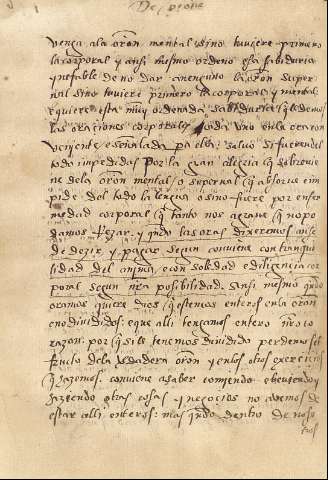 De p'ione
venga a la oron mental si no tuviere primero
la corporal y ansi mesmo ordeno esta sabiduria
ynefable de no dar a nenguno la oron super
nal si no tuviere primero la corporal y mental
requiere esta muy ordenada sabiduria q̃ dẽmos
las oraciones corporales cada una en la oraron
conveniente e señalada pa ella: salvo si fueren del
todo impedidas por la gran alegria q̃ sobrevie
ne de la oron mental o supernal q̃ absorve e im
pide del todo la lengua o si no fuere por enfer
medad corporal q̃ tanto nos agrave q̃ no po
damos rezar. y qndo las oras dixeremos an se
de dezir y pagar segun conviene con tranqui
lidad del animo, e con soledad e diligencia cor
poral segun nra posibilidad. y ansi mesmo qndo
oramos quiere dios q̃ estemos enteros en la oron
e no divididos: e que alli tengamos entero nro co
razon: por q̃ si le tenemos dividido perdemos el
fruto de la verdadera oron y en los otros exercicios
q̃ hazemos. conviene a saber comiendo e beviendo y
haziendo otras cosas y negocios no avemos de
estar alli enteros: mas qndo dentro de noso
tros